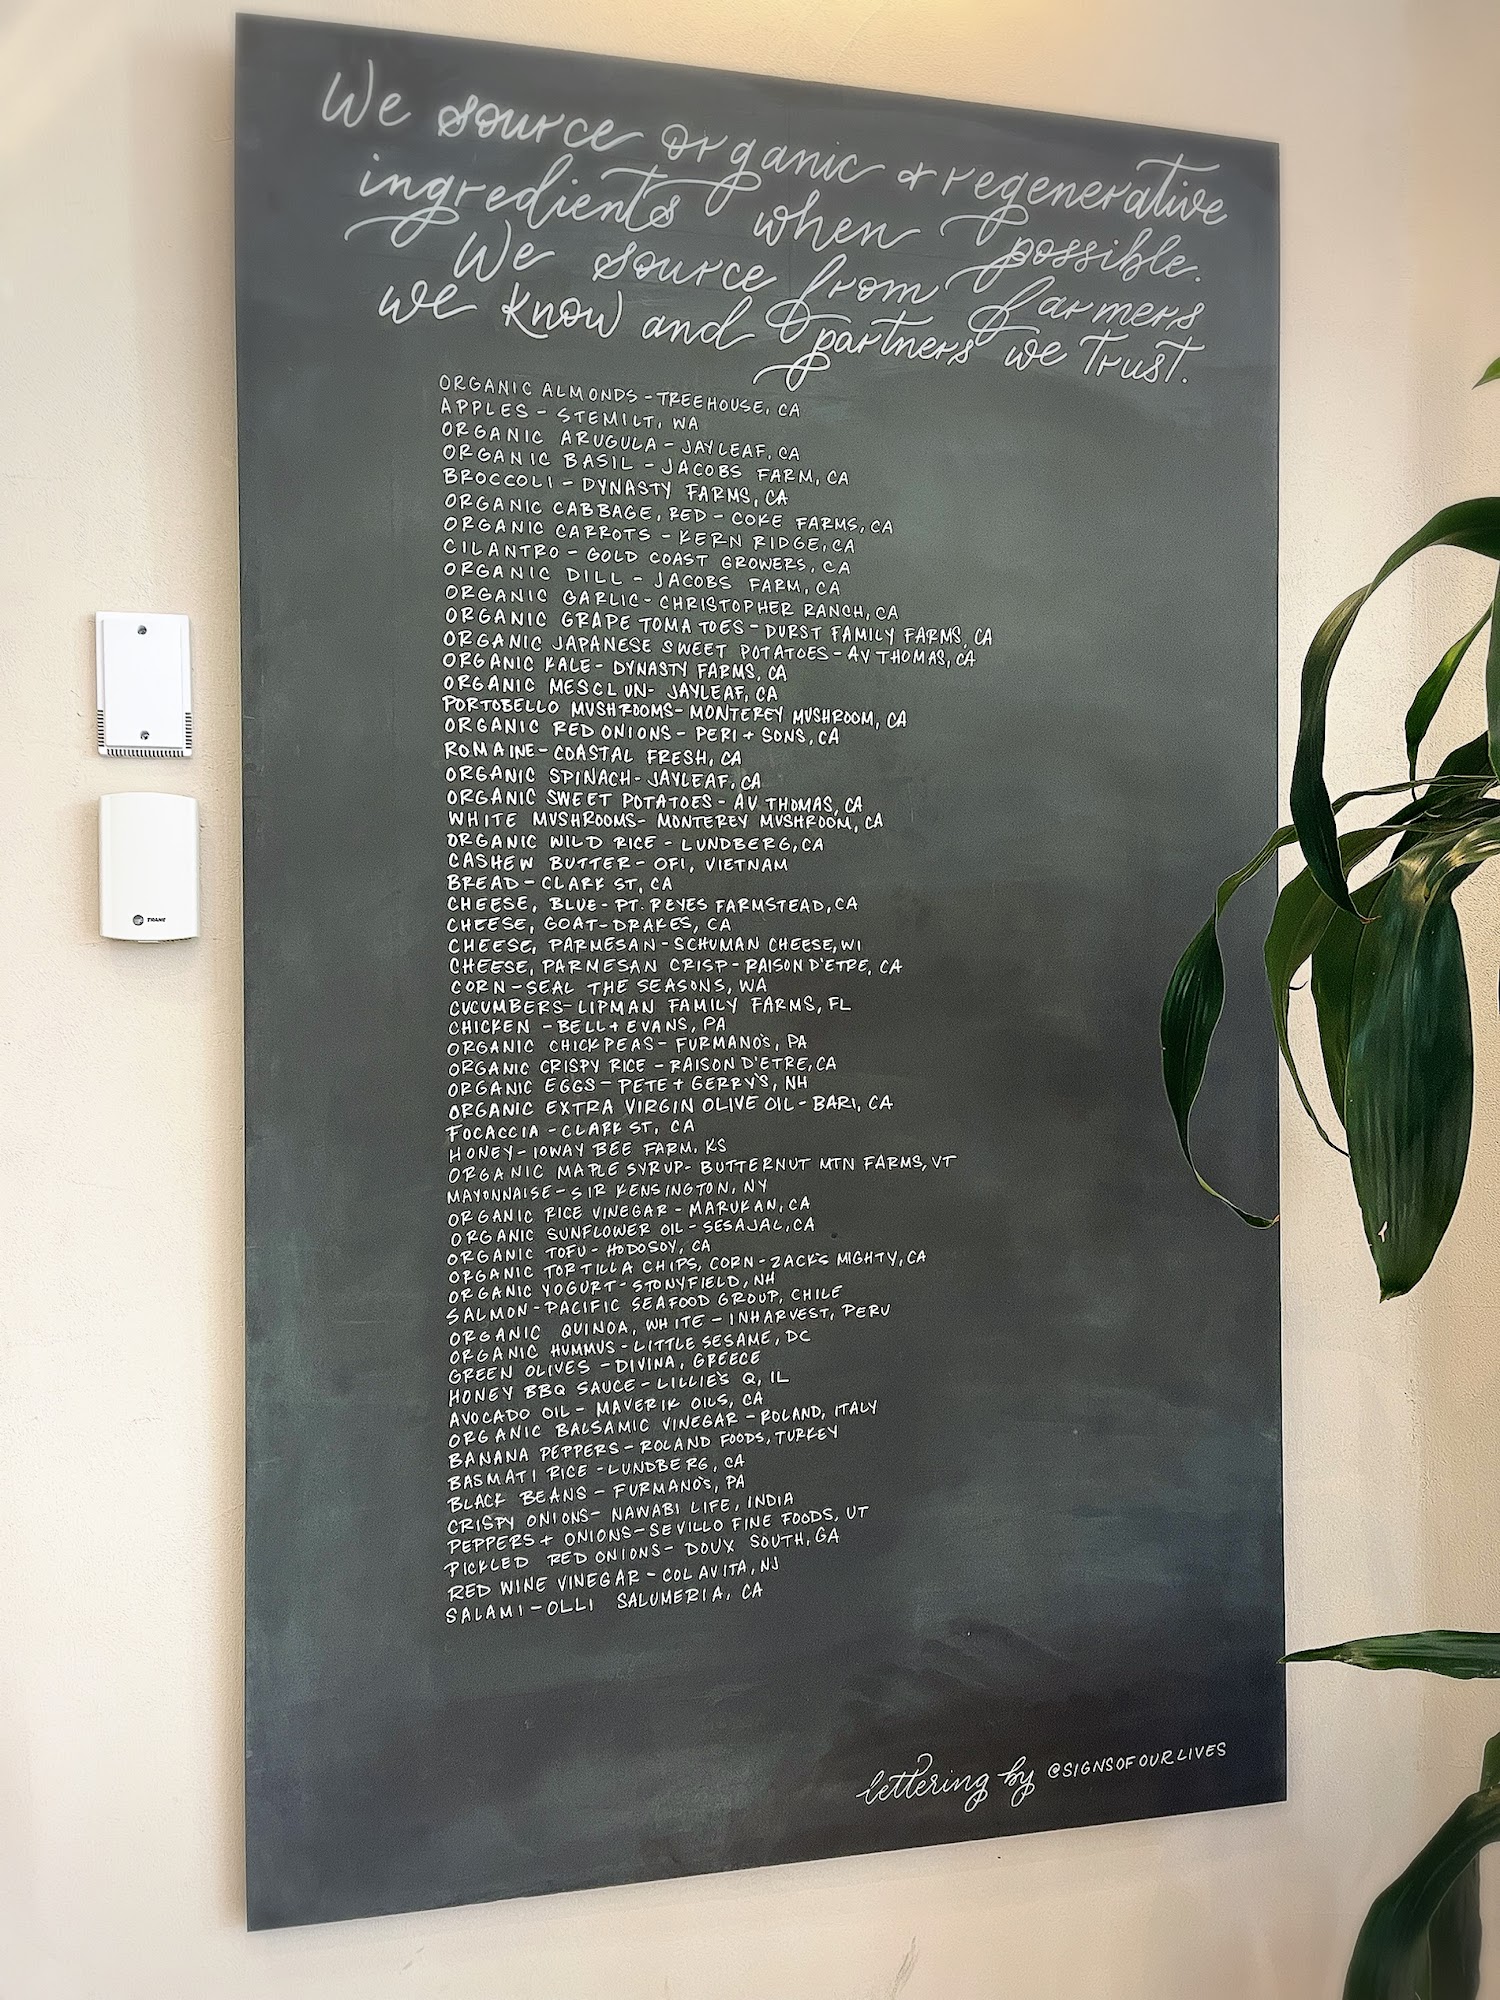 We source organic & regenerative
ingredients when possible.
We source from farmers
we know and partners we trust.
ORGANIC ALMONDS - TREEHOUSE, CA
APPLES - STEMILT, WA
ORGANIC ARUGULA - JAYLEAF, CA
ORGANIC BASIL - JACOBS FARM, CA
BROCCOLI - DYNASTY FARMS, CA
ORGANIC CABBAGE, RED - COKE FARMS, CA
ORGANIC CARROTS - KERN RIDGE, CA
CILANTRO - GOLD COAST GROWERS, CA
ORGANIC DILL - JACOBS FARM, CA
ORGANIC GARLIC - CHRISTOPHER RANCH, CA
ORGANIC GRAPE TOMATOES - DURST FAMILY FARMS, CA
ORGANIC JAPANESE SWEET POTATOES - AV THOMAS, CA
ORGANIC KALE - DYNASTY FARMS, CA
ORGANIC MESCLUN - JAYLEAF, CA
PORTOBELLO MUSHROOMS - MONTEREY MUSHROOM, CA
ORGANIC RED ONIONS - PERI + SONS, CA
ROMAINE - COASTAL FRESH, CA
ORGANIC SPINACH - JAYLEAF, CA
ORGANIC SWEET POTATOES - AV THOMAS, CA
WHITE MUSHROOMS - MONTEREY MUSHROOM, CA
ORGANIC WILD RICE - LUNDBERG, CA
CASHEW BUTTER - OFI, VIETNAM
BREAD - CLARK ST, CA
CHEESE, BLUE - PT. REYES FARMSTEAD, CA
CHEESE, GOAT - DRAKES, CA
CHEESE, PARMESAN - SCHUMAN CHEESE, WI
CHEESE, PARMESAN CRISP - RAISON D'ETRE, CA
CORN - SEAL THE SEASONS, WA
CUCUMBERS - LIPMAN FAMILY FARMS, FL
CHICKEN - BELL + EVANS, PA
ORGANIC CHICKPEAS - FURMANO'S, PA
ORGANIC CRISPY RICE - RAISON D'ETRE, CA
ORGANIC EGGS - PETE + GERRY'S, NH
ORGANIC EXTRA VIRGIN OLIVE OIL - BARI, CA
FOCACCIA - CLARK ST, CA
HONEY - IOWAY BEE FARM, KS
ORGANIC MAPLE SYRUP - BUTTERNUT MTN FARMS, VT
MAYONNAISE - SIR KENSINGTON, NY
ORGANIC RICE VINEGAR - MARUKAN, CA
ORGANIC SUNFLOWER OIL - SESAJAL, CA
ORGANIC TOFU - HODOSOY, CA
ORGANIC TORTILLA CHIPS, CORN - ZACK'S MIGHTY, CA
ORGANIC YOGURT - STONYFIELD, NH
SALMON - PACIFIC SEAFOOD GROUP, CHILE
ORGANIC QUINOA, WHITE - INHARVEST, PERU
ORGANIC HUMMUS - LITTLE SESAME, DC
GREEN OLIVES - DIVINA, GREECE
HONEY BBQ SAUCE - LILLIE'S Q, IL
AVOCADO OIL - MAVERIK OILS, CA
ORGANIC BALSAMIC VINEGAR - ROLAND, ITALY
BANANA PEPPERS - ROLAND FOODS, TURKEY
BASMATI RICE - LUNDBERG, CA
BLACK BEANS - FURMANO'S, PA
CRISPY ONIONS - NAWABI LIFE, INDIA
PEPPERS + ONIONS - SEVILLO FINE FOODS, UT
PICKLED RED ONIONS - DOUX SOUTH, GA
RED WINE VINEGAR - COLAVITA, NJ
SALAMI - OLLI SALUMERIA, CA
lettering by @SIGNSOFOURLIVES
TRANE